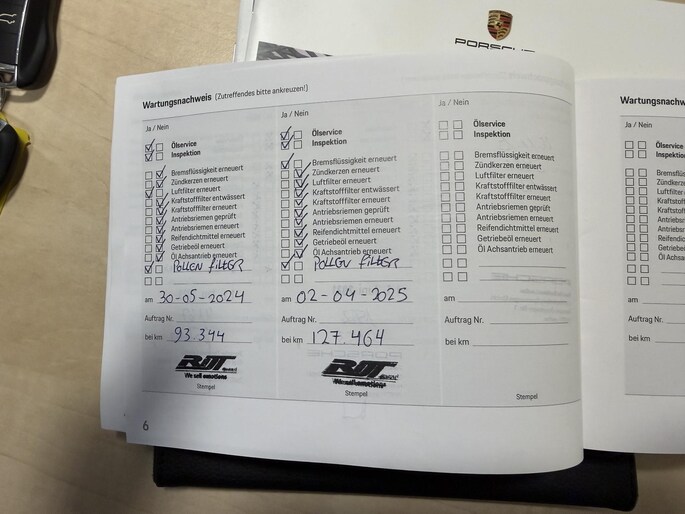 PORSCHE
Wartungsnachweis (Zutreffendes bitte ankreuzen!)
Ja / Nein
Ölservice
Inspektion
Bremsflüssigkeit erneuert
Zündkerzen erneuert
Luftfilter erneuert
Kraftstofffilter entwässert
Kraftstofffilter erneuert
Antriebsriemen geprüft
Antriebsriemen erneuert
Reifendichtmittel erneuert
Getriebeöl erneuert
Öl Achsantrieb erneuert
POLLEN FILTER
am 30-05-2024
Auftrag Nr.
bei km 93.344
We sell emotions
Stempel
6
Ja / Nein
Ölservice
Inspektion
Bremsflüssigkeit erneuert
Zündkerzen erneuert
Luftfilter erneuert
Kraftstofffilter entwässert
Kraftstofffilter erneuert
Antriebsriemen geprüft
Antriebsriemen erneuert
Reifendichtmittel erneuert
Getriebeöl erneuert
Öl Achsantrieb erneuert
POLLEN FILTER
am 02-04-2025
Auftrag Nr.
bei km 127.464
We sell emotions
Stempel
Ja / Nein
Ölservice
Inspektion
Bremsflüssigkeit erneuert
Zündkerzen erneuert
Luftfilter erneuert
Kraftstofffilter entwässert
Kraftstofffilter erneuert
Antriebsriemen geprüft
Antriebsriemen erneuert
Reifendichtmittel erneuert
Getriebeöl erneuert
Öl Achsantrieb erneuert
am
Auftrag Nr.
bei km
Stempel
Wartungsnachw
Ja / Nein
Ölservice
Inspektion
Bremsflüssi
Zündkerzen
Luftfilter e
Kraftstofff
Kraftstofff
Antriebsri
Antriebsri
Reifendich
Getriebeöl
Öl Achsan
am
Auftrag Nr.
bei km